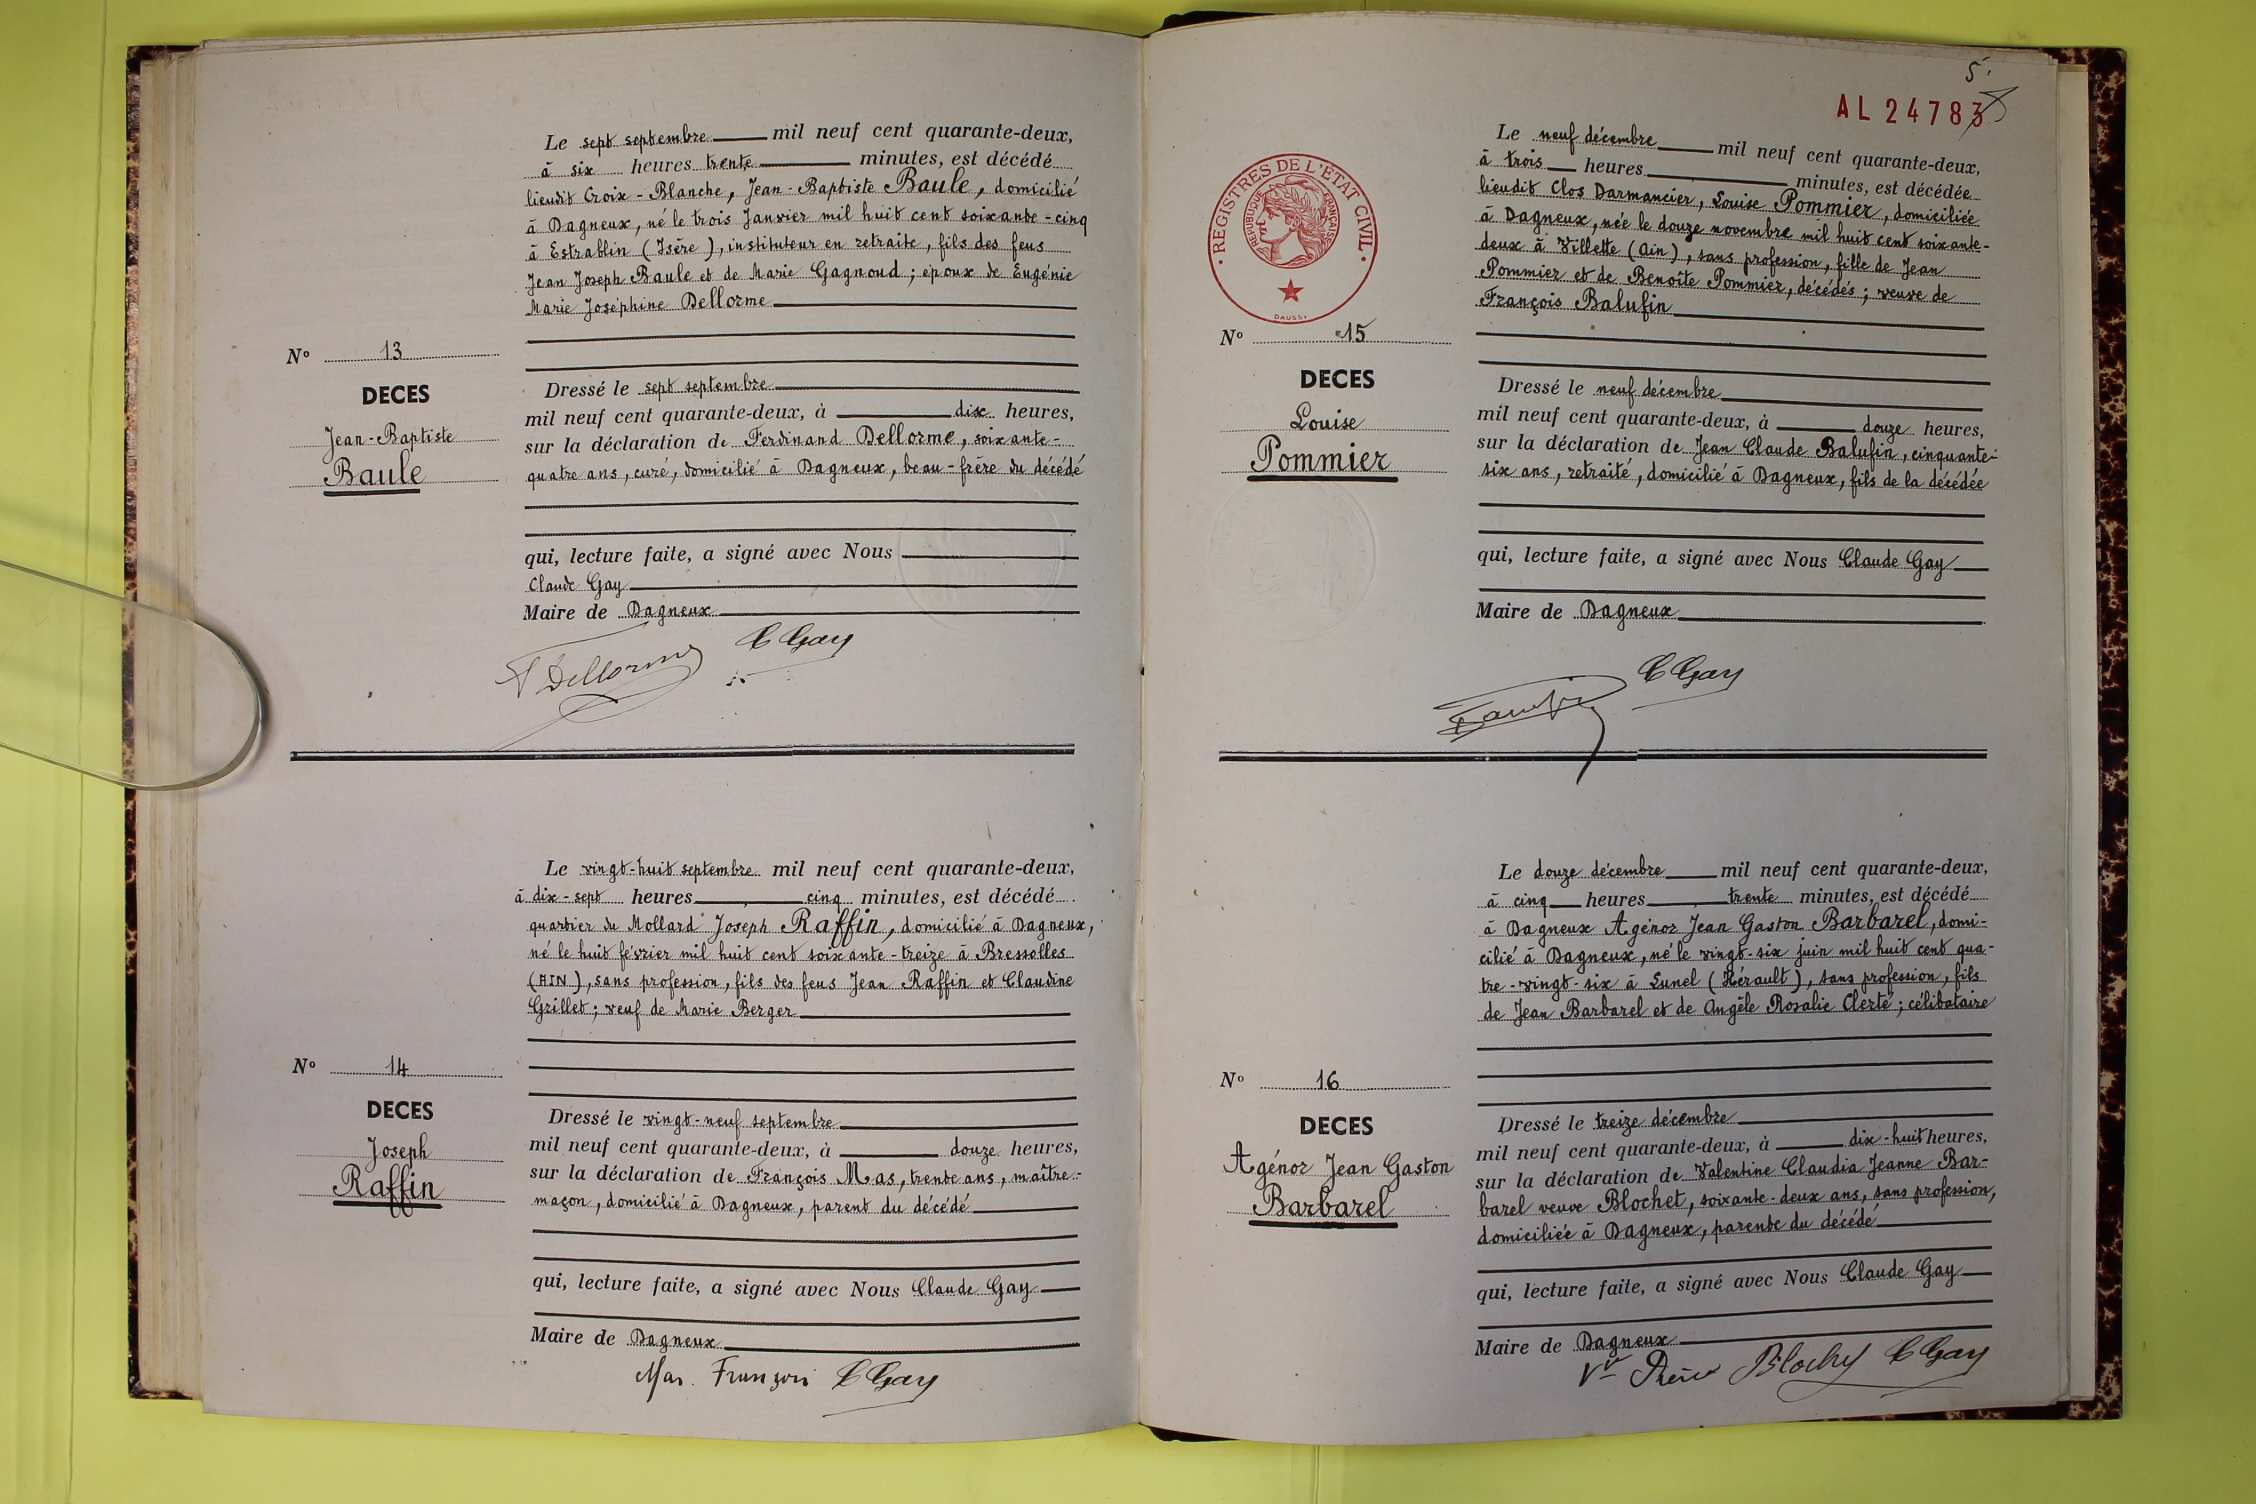 Le sept septembre mil neuf cent quarante-deux,
à six heures trente minutes, est décédé
lieudit Croix-Blanche, Jean-Baptiste Baule, domicilié
à Dagneux, né le trois Janvier mil huit cent soixante-cinq
à Estrablin (Isère), instituteur en retraite, fils des feus
Jean Joseph Baule et de Marie Gagnoud; époux de Eugénie
Marie Joséphine Dellorme
Nº 13
DECES
Jean-Baptiste
Baule
Dressé le sept septembre
mil neuf cent quarante-deux, à dix heures,
sur la déclaration de Ferdinand Dellorme, soixante-
quatre ans, curé, domicilié à Dagneux, beau-frère du décédé
qui, lecture faite, a signé avec Nous
Claude Gay
Maire de Dagneux
F Dellorme C Gay
Le vingt-huit septembre mil neuf cent quarante-deux,
à dix-sept heures cinq minutes, est décédé
quartier du Mollard Joseph Raffin, domicilié à Dagneux,
né le huit février mil huit cent soixante-treize à Bressolles
(AIN), sans profession, fils des feus Jean Raffin et Claudine
Grillet; veuf de Marie Berger
Nº 14
DECES
Joseph
Raffin
Dressé le vingt-neuf septembre
mil neuf cent quarante-deux, à douze heures,
sur la déclaration de François Mas, trente ans, maître-
maçon, domicilié à Dagneux, parent du décédé
qui, lecture faite, a signé avec Nous Claude Gay
Maire de Dagneux
Mas François C Gay
5.
AL 24783
REGISTRES DE L'ÉTAT CIVIL
RÉPUBLIQUE FRANÇAISE
DAUSSY
Le neuf décembre mil neuf cent quarante-deux,
à trois heures minutes, est décédée
lieudit Clos Darmancier, Louise Pommier, domiciliée
à Dagneux, née le douze novembre mil huit cent soixante-
deux à Villette (Ain), sans profession, fille de Jean
Pommier et de Benoîte Pommier, décédés; veuve de
François Balufin
Nº 15
DECES
Louise
Pommier
Dressé le neuf décembre
mil neuf cent quarante-deux, à douze heures,
sur la déclaration de Jean Claude Balufin, cinquante-
six ans, retraité, domicilié à Dagneux, fils de la décédée
qui, lecture faite, a signé avec Nous Claude Gay
Maire de Dagneux
C Gay
Le douze décembre mil neuf cent quarante-deux,
à cinq heures trente minutes, est décédé
à Dagneux Agénor Jean Gaston Barbarel, domi-
cilié à Dagneux, né le vingt-six juin mil huit cent qua-
tre-vingt-six à Lunel (Hérault), sans profession, fils
de Jean Barbarel et de Angèle Rosalie Clerté; célibataire
Nº 16
DECES
Agénor Jean Gaston
Barbarel
Dressé le treize décembre
mil neuf cent quarante-deux, à dix-huit heures,
sur la déclaration de Valentine Claudia Jeanne Bar-
barel veuve Blochet, soixante-deux ans, sans profession,
domiciliée à Dagneux, parente du décédé
qui, lecture faite, a signé avec Nous Claude Gay
Maire de Dagneux
Vve C Gay